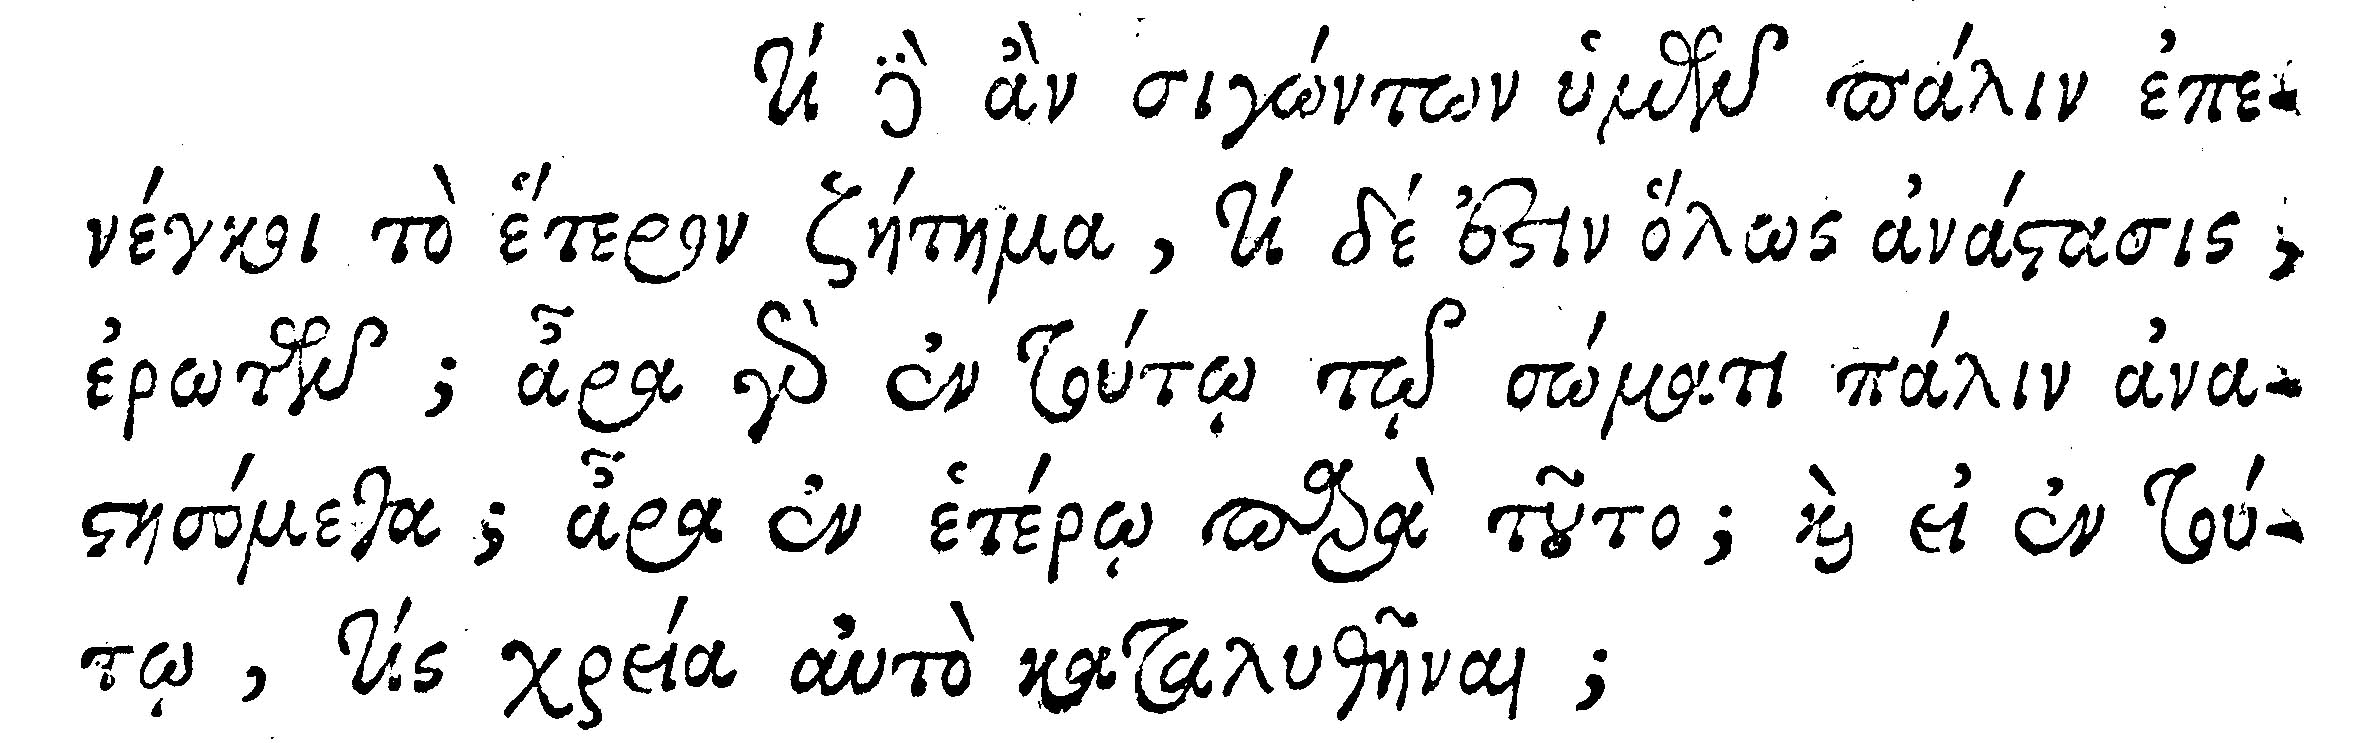 Τί ἂν σιγώντων ὑμῶν πάλιν ἐπε-
νέγκοι τὸ ἕτερον ζήτημα, τί δέ ἐστιν ὅλως ἀνάστασις;
ἐρωτῶν; ἆρα γὰρ ἐν τούτῳ τῷ σώματι πάλιν ἀνα-
στησόμεθα; ἆρα ἐν ἑτέρῳ παρὰ τοῦτο; καὶ εἰ ἐν τού-
τῳ, τίς χρεία αὐτὸ καταλυθῆναι;